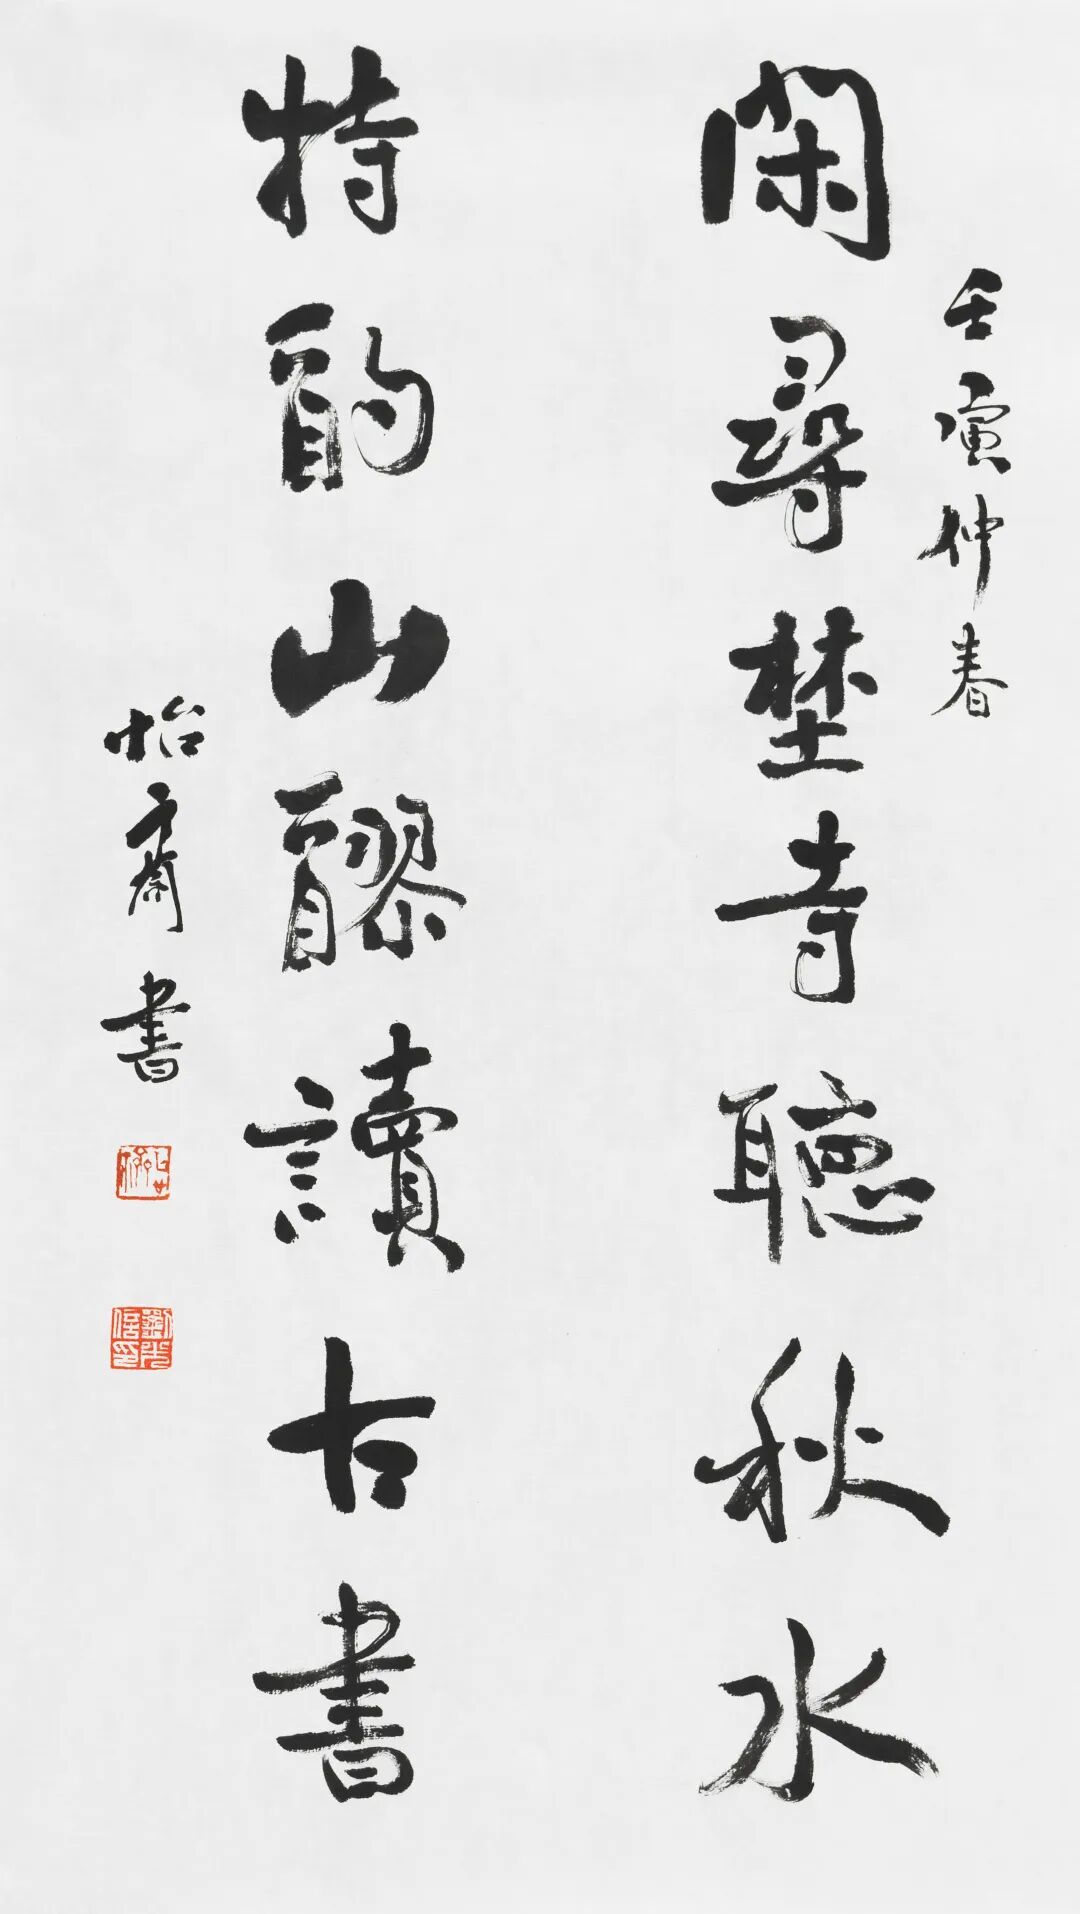 壬寅仲春
閑尋埜寺聽秋水
特酌山醪讀古書
怡齋書